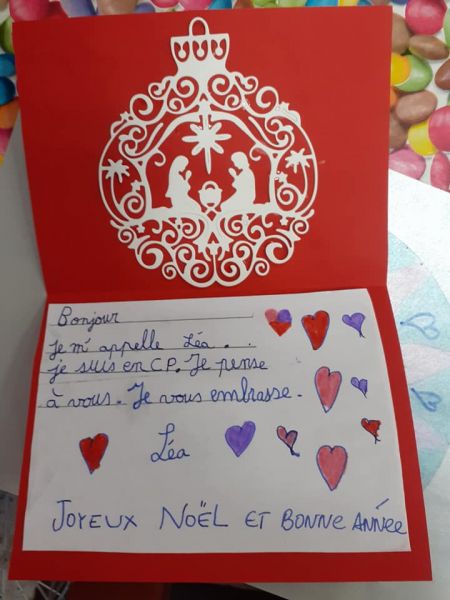 Bonjour
Je m'appelle Léa . .
je suis en CP. Je pense
à vous. Je vous embrasse.
Léa
JOYEUX NOËL ET BONNE ANNÉE